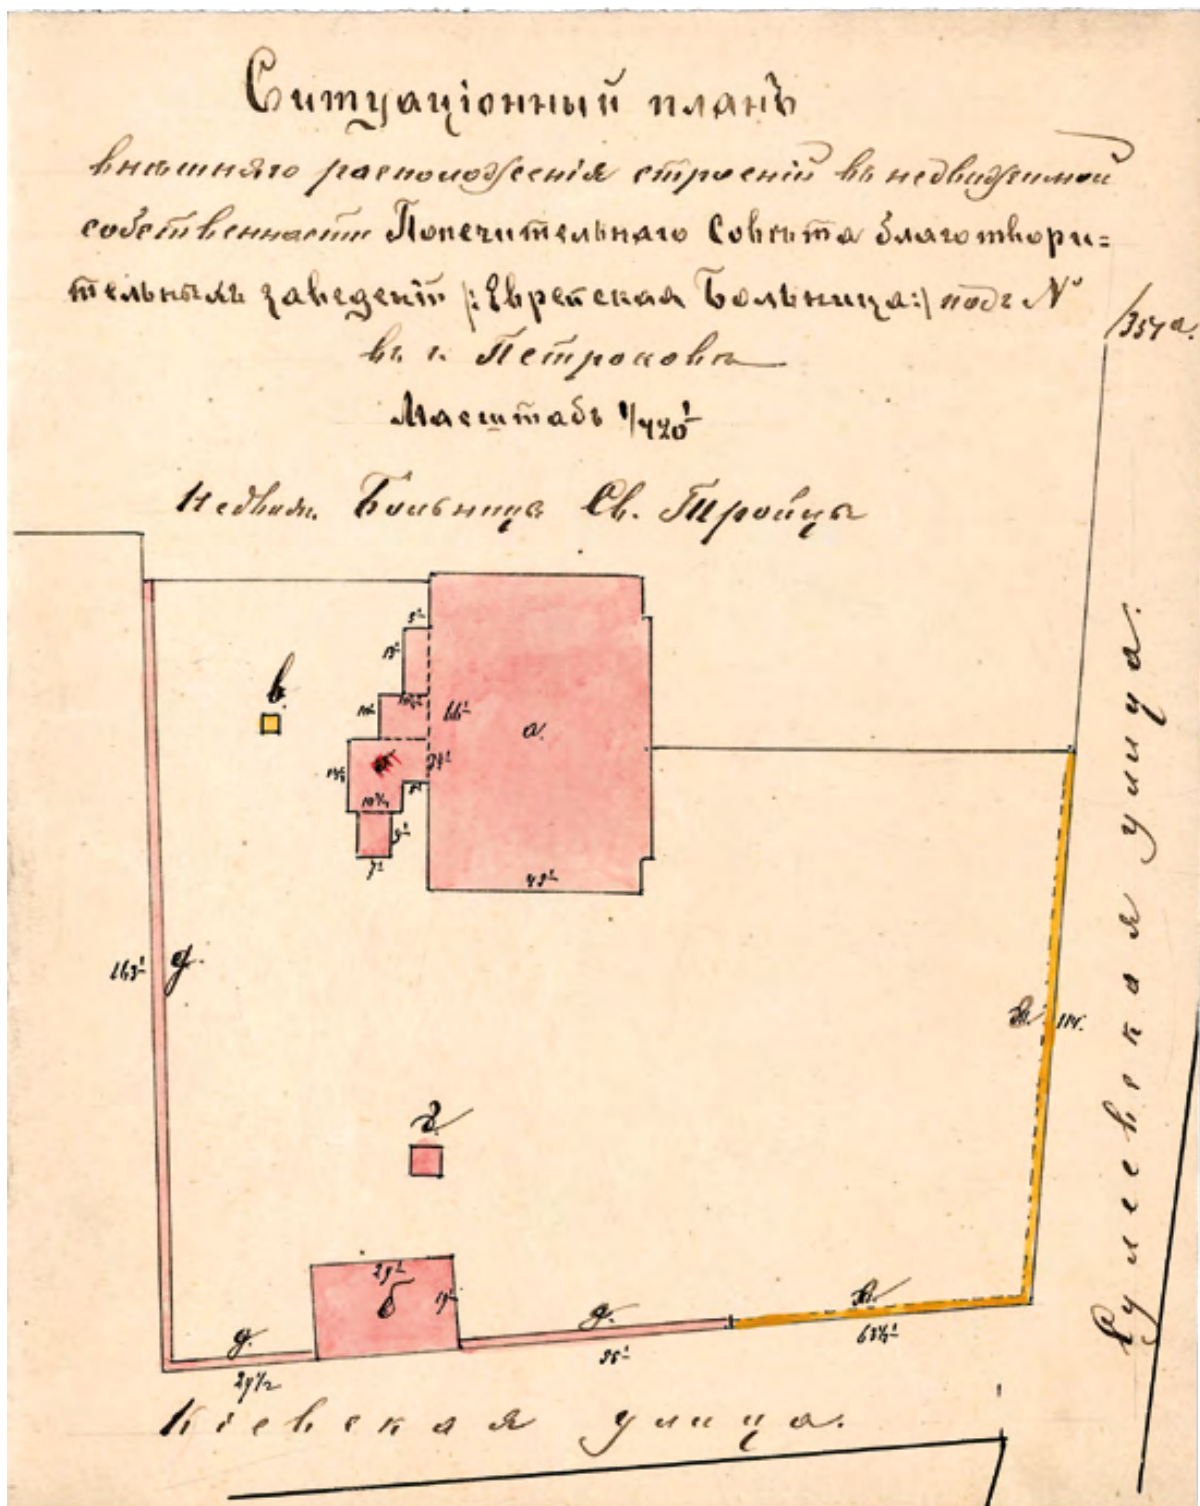 Ситуаціонный планъ
внѣшняго расположенія строеній въ недвижимой
собственности Попечительнаго Совѣта благотвори=
тельныхъ заведеній /:Еврейская Больница:/ подъ №
/354а.
въ г. Петроковѣ
Масштабъ 1/420
Недвиж. Больницы Св. Тройцы
5'
в
13'
66'
10'
а.
10½
9'
7'
49'
163'
д.
ж. 114.
г.
29'
б 19'
д.
д.
ж.
29½
63½'
Кіевская улица.
Сулеевская улица.